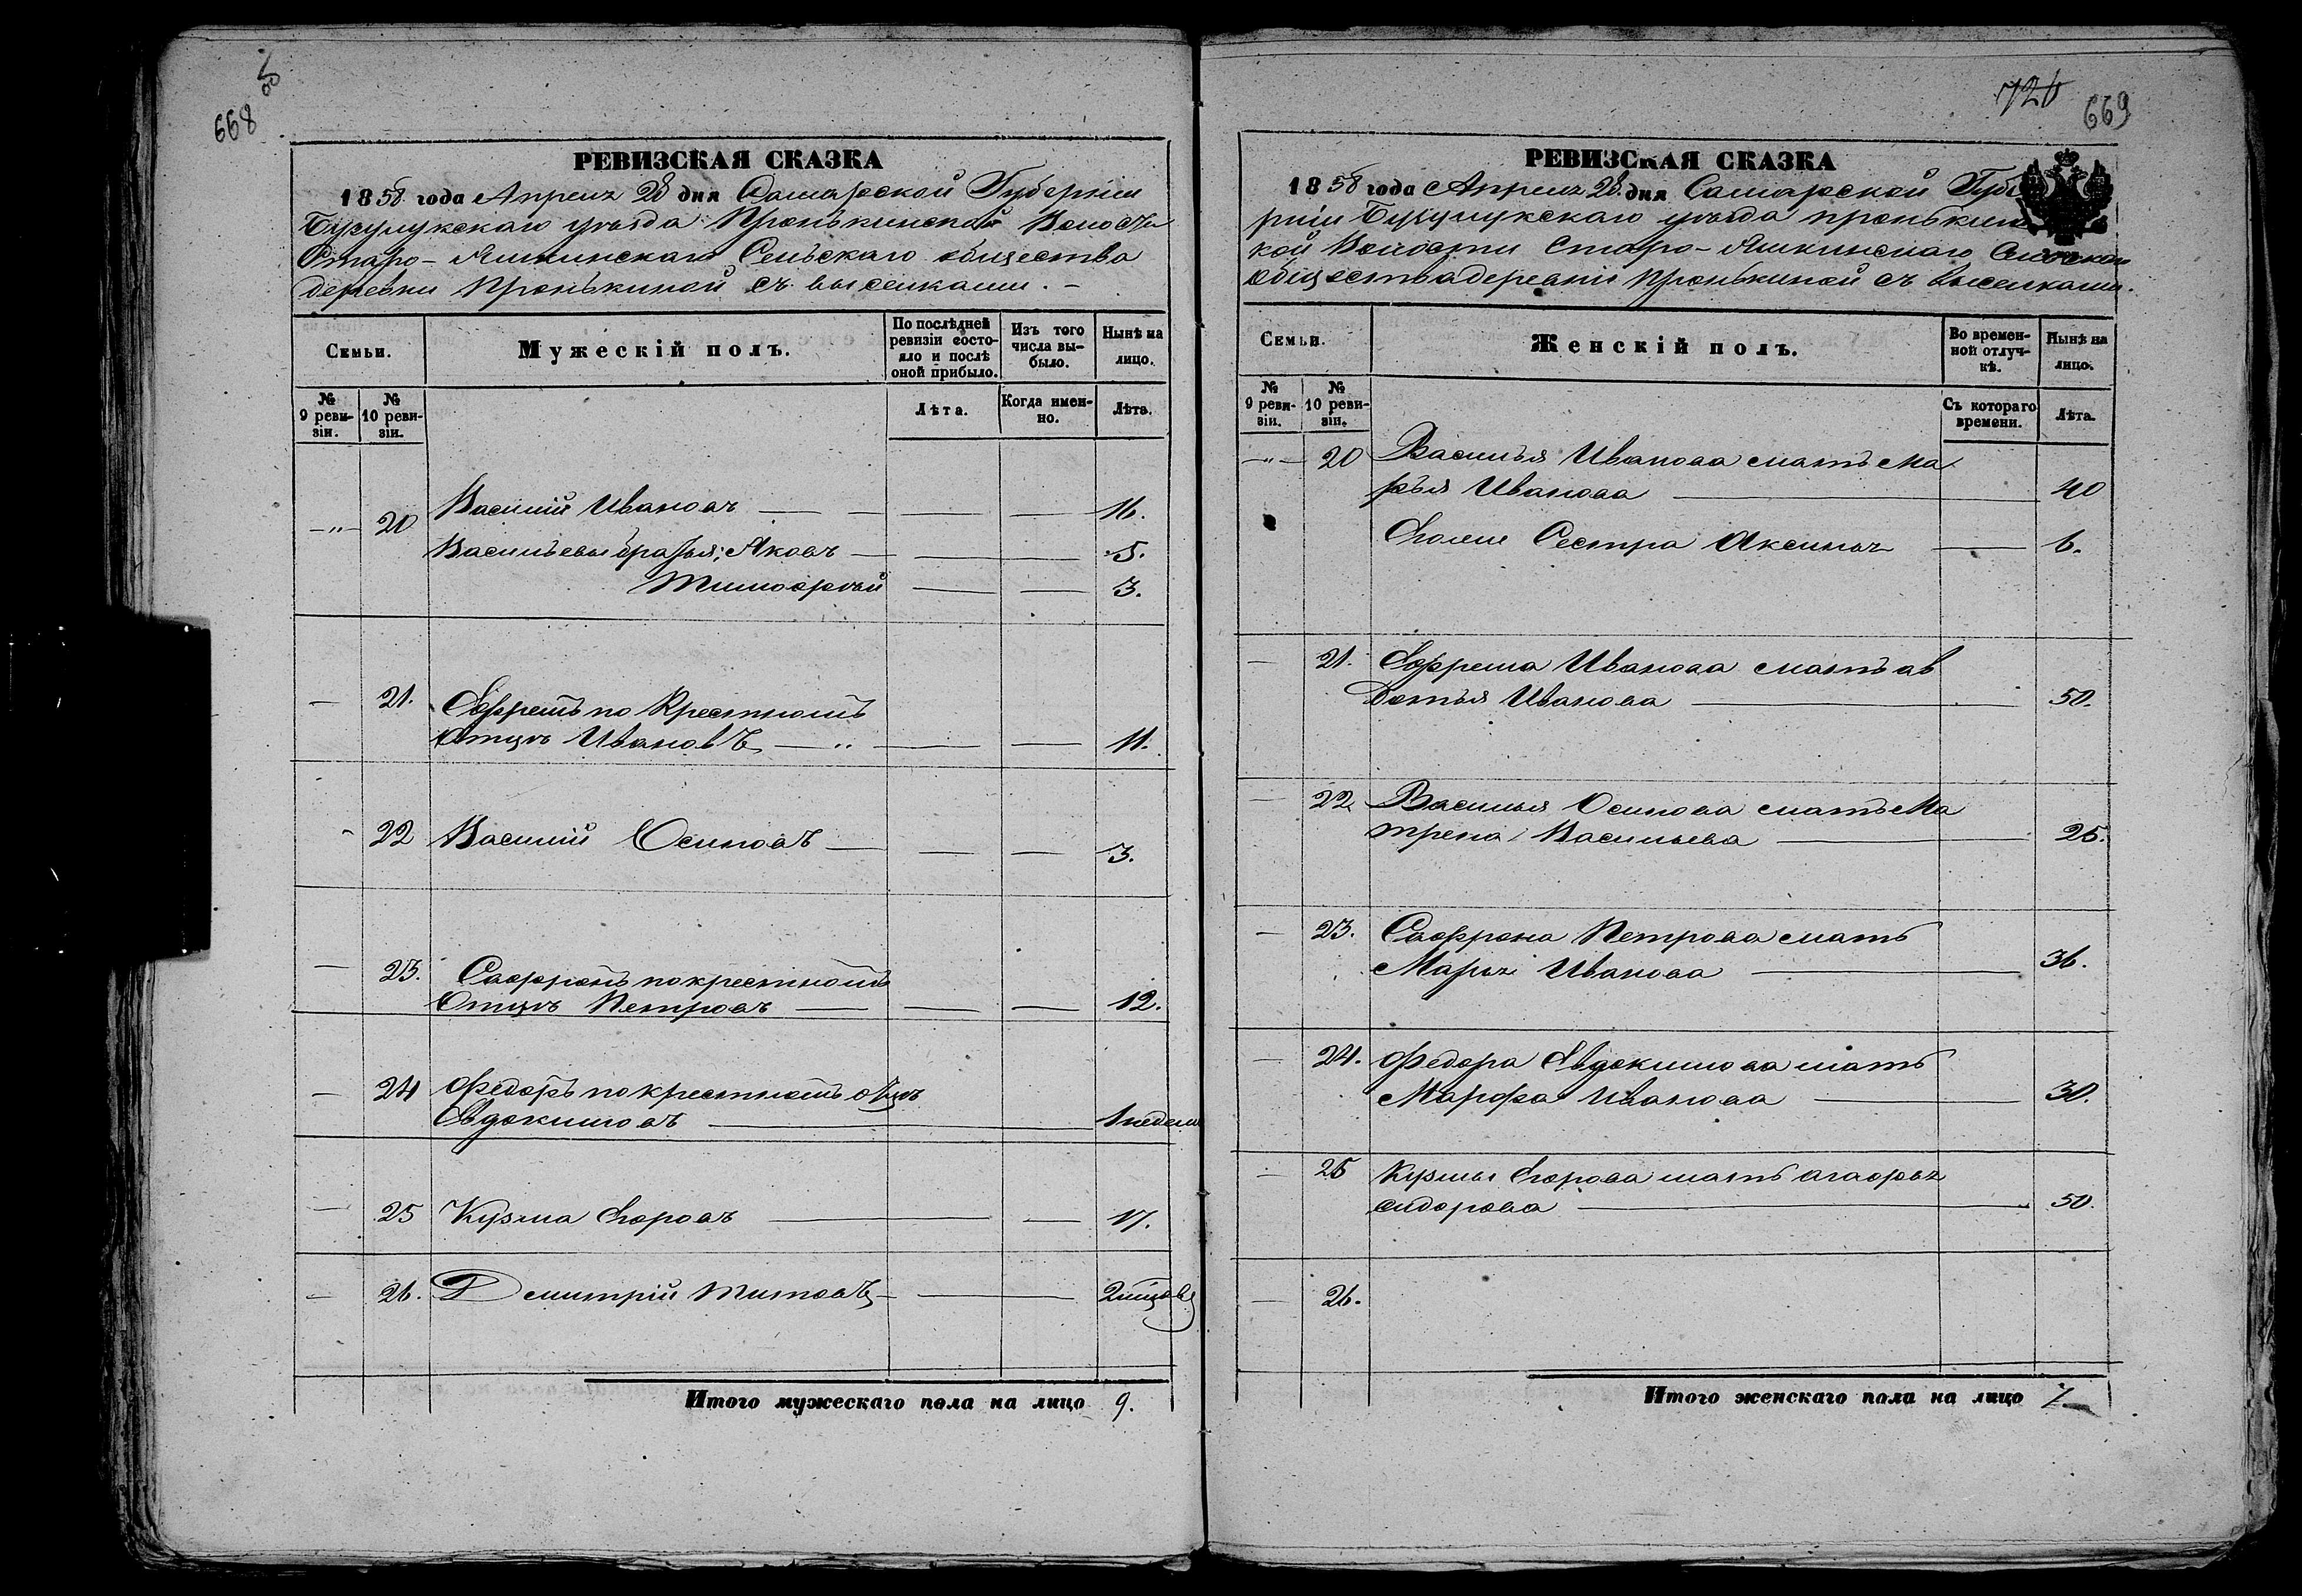 668
РЕВИЗСКАЯ СКАЗКА
1858 года Апреля 28 дня Самарской Губерніи
Бузулукскаго уѣзда Пронькинской Волости
Старо-Яшкинскаго Сельскаго общества
деревни Пронькиной съ выселками. -
Семьи.
Мужескій полъ.
По послѣдней ревизіи состояло и послѣ оной прибыло.
Изъ того числа выбыло.
Нынѣ на лицо.
№ 9 ревизіи.
№ 10 ревизіи.
Лѣта.
Когда именно.
Лѣта.
-"- 20 Василій Ивановъ — — — 16.
Васильевы братья: Яковъ — — — 5.
Тимофѣй — — 3.
— 21. Ефремъ по Крестномъ
Отцѣ Ивановъ — — — 11.
- 22 Василій Осиповъ — — — 3.
— 23. Сафронъ по крестномъ
Отцѣ Петровъ — — — 12.
— 24 Федоръ по крестномъ отцѣ
Евдокимовъ — 1 недели
— 25 Кузма Егоровъ — — 17.
— 26. Дмитрій Титовъ — — — 2 мцовъ
Итого мужескаго пола на лицо 9.
726
669
РЕВИЗСКАЯ СКАЗКА
1858 года Апреля 28 дня Самарской Губе
рніи Бузулукскаго уѣзда пронькинс
кой Волости Старо-Яшкинскаго Сельскаго
общества деревни Пронькиной съ выселками.
Семьи.
Женскій полъ.
Во временной отлучкѣ.
Нынѣ на лицо.
№ 9 ревизіи.
№ 10 ревизіи.
Съ котораго времени.
Лѣта.
-"- 20 Василья Иванова мать Ма
рья Иванова — 40
Его же Сестра Аксинья — 6.
— 21. Ефрема Иванова мать ав
дотья Иванова — 50.
— 22 Василья Осипова мать Ма
трена Васильева — 25.
— 23. Сафрона Петрова мать
Марья Иванова — 36.
— 24. Федора Евдокимова мать
Марфа Иванова — 30.
— 25 Кузмы Егорова мать агафья
сидорова — 50.
— 26.
Итого женскаго пола на лицо 7.